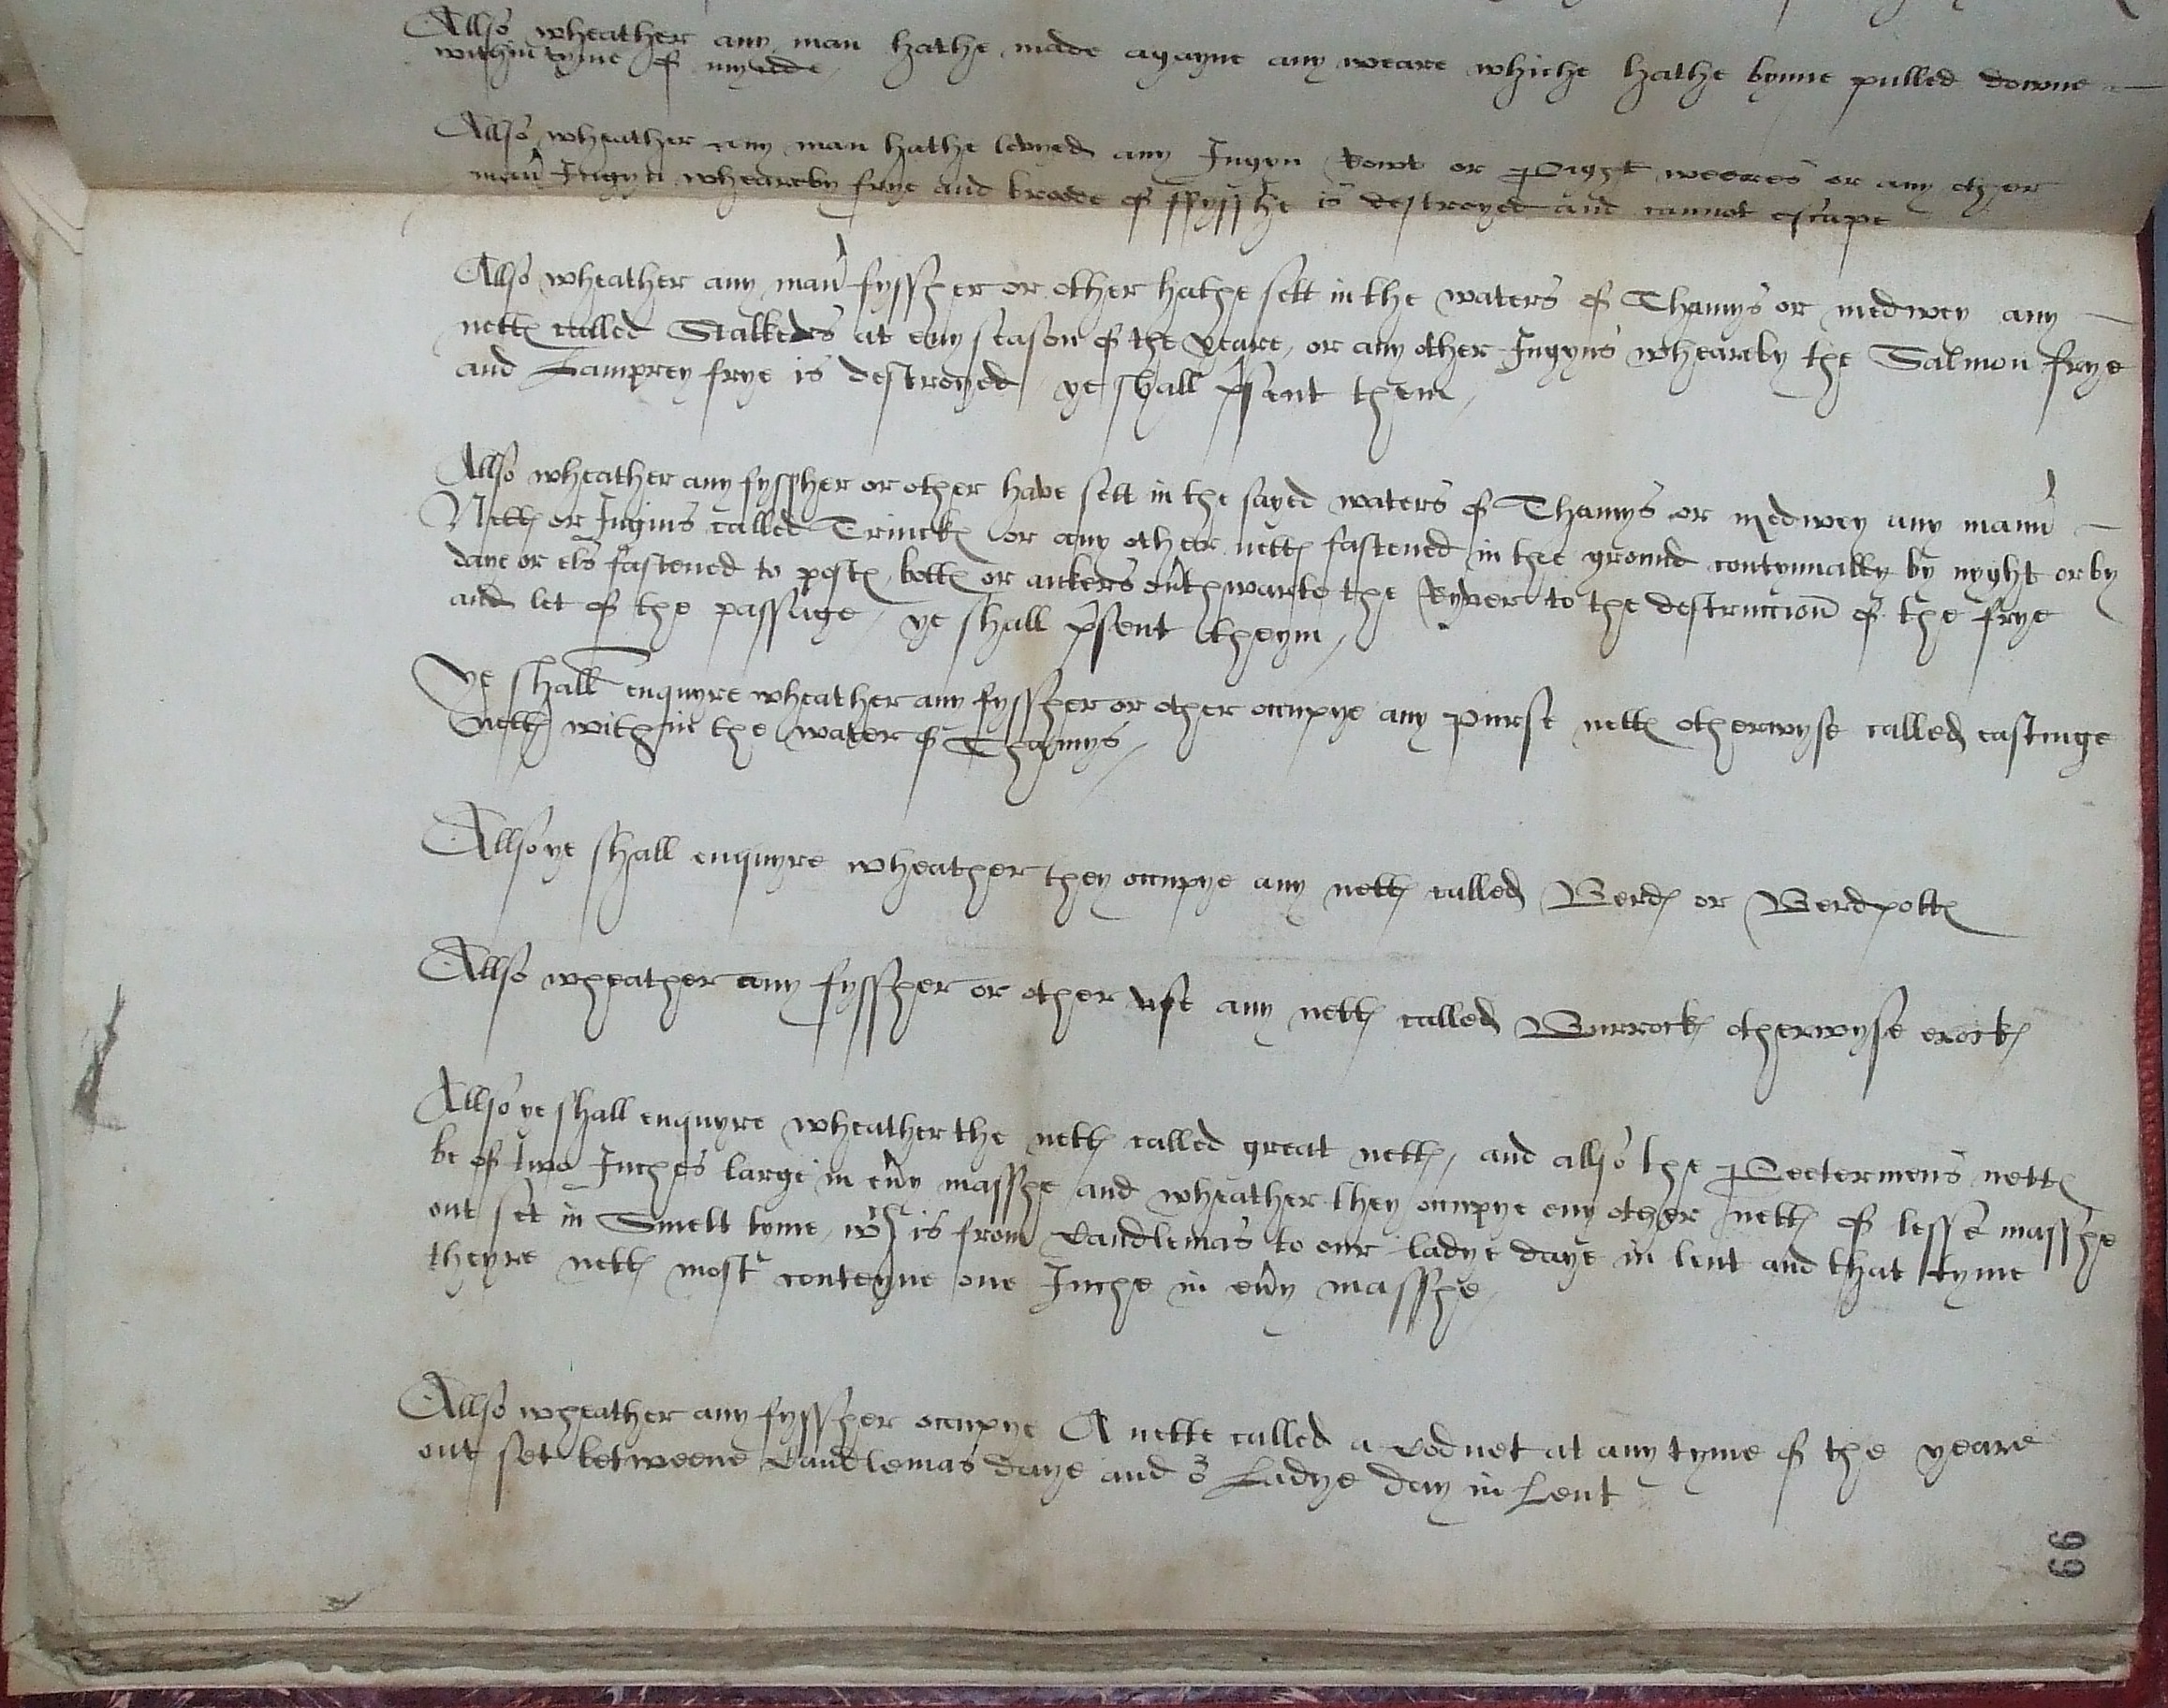 Allso wheather any man hathe made agayne any weare whiche hathe bynne pulled downe
within tyme of mynde
Allso wheather any man hathe levyed any Ingyn Rowt or Pight weeres or any other
man̄ Ingyn wheareby frye and broode of ffysshe is destroyed and cannot escape
Allso wheather any man̄ fyssher or other hathe sett in the waters of Thamys or medwey any
nettꝭ called Stalkers at eny season of the yeare, or any other Ingyns wheareby the Salmon frye
and Lamprey frye is destroyed ye shall p̄sent them
Allso wheather any fyssher or other have sett in the sayed waters of Thamys or medwey any man̄
Nettꝭ or Ingins called Trinckꝭ or any other nettꝭ fastened in the ground contynnally by nyght or by
daye or els fastened to postꝭ bottꝭ or ankers the Ryver to the destruccion̄ of the frye
and let of the passage, ye shall p̄sent theym
Ye shall enquyre wheather any fyssher or other occupye any purse nettꝭ otherwyse called castinge
nettꝭ within the water of Thamys
Allso ye shall enquyre wheather they occupye any nettꝭ called Berdꝭ or Berdpottꝭ
Allso wheather any fyssher or other use any nettꝭ called Burrockꝭ otherwyse erockꝭ
Allso ye shall enquyre wheather the nettꝭ called great nettꝭ, and allso the Peetermens nettꝭ
be of two Inches large in ev̄y masshe and wheather they occupye eny other nettꝭ of lesse masshe
out set in Smelt tyme, wᶜʰ is from Candlemas to our ladye daye in lent and that tyme
theyre nettꝭ most conteyne one Inche in ev̄y masshe
Allso wheather any fyssher occupye A nette called a Codnet at any tyme of the yeare
out set betweene Candlemas daye and oʳ Ladye day in Lent
66